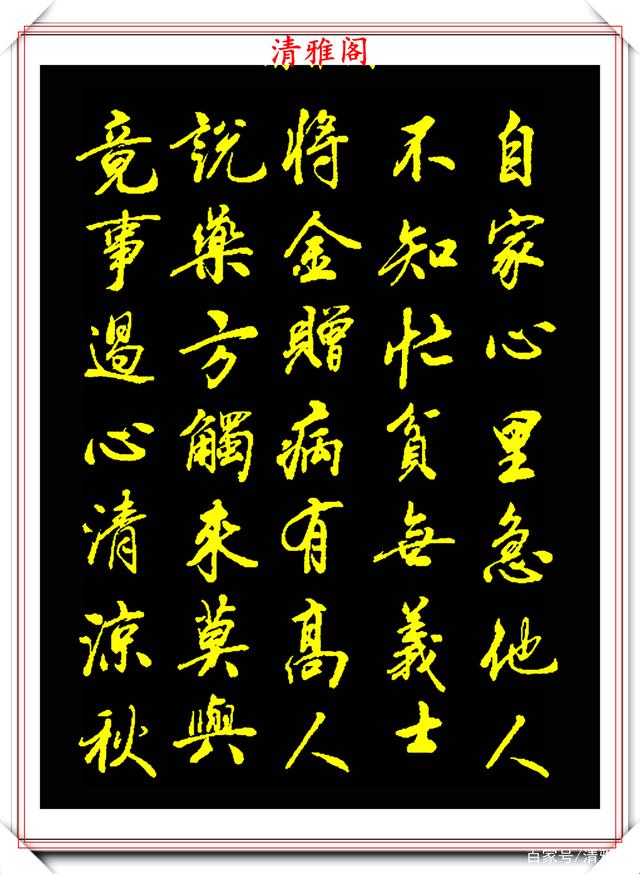 清雅阁
自家心里急他人
不知忙貧無義士
将金贈病有高人
説藥方觸來莫與
竟事過心清涼秋
百家号/清雅